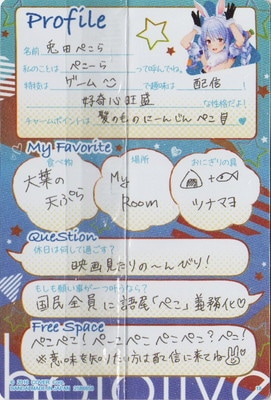 Profile
名前 兎田ぺこら
私のことは ぺこーら って呼んでね。
特技は ゲーム で趣味は 配信 !
好奇心旺盛 な性格だよ!
チャームポイントは 髪のものにーんじんぺこ
My Favorite
食べ物 場所 おにぎりの具
大葉の天ぷら
My Room
ツナマヨ
Question
休日は何して過ごす?
映画見たりの〜んびり!
もしも願い事が一つ叶うなら?
国民全員に語尾「ぺこ」義務化♡
Free Space
ぺこぺこ!ぺこーぺこぺこ?ぺこ!
※意味を知りたい方は配信に来てね
hololive